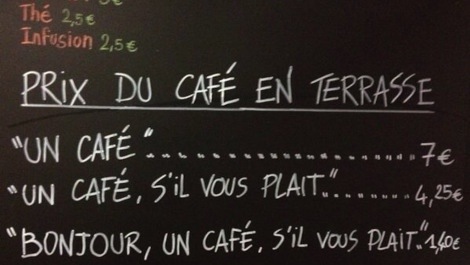 Thé 2,5€
Infusion 2,5€
PRIX DU CAFÉ EN TERRASSE
"UN CAFÉ"................7€
"UN CAFÉ, S'IL VOUS PLAIT"..........4,25€
"BONJOUR, UN CAFÉ, S'IL VOUS PLAIT".1,40€